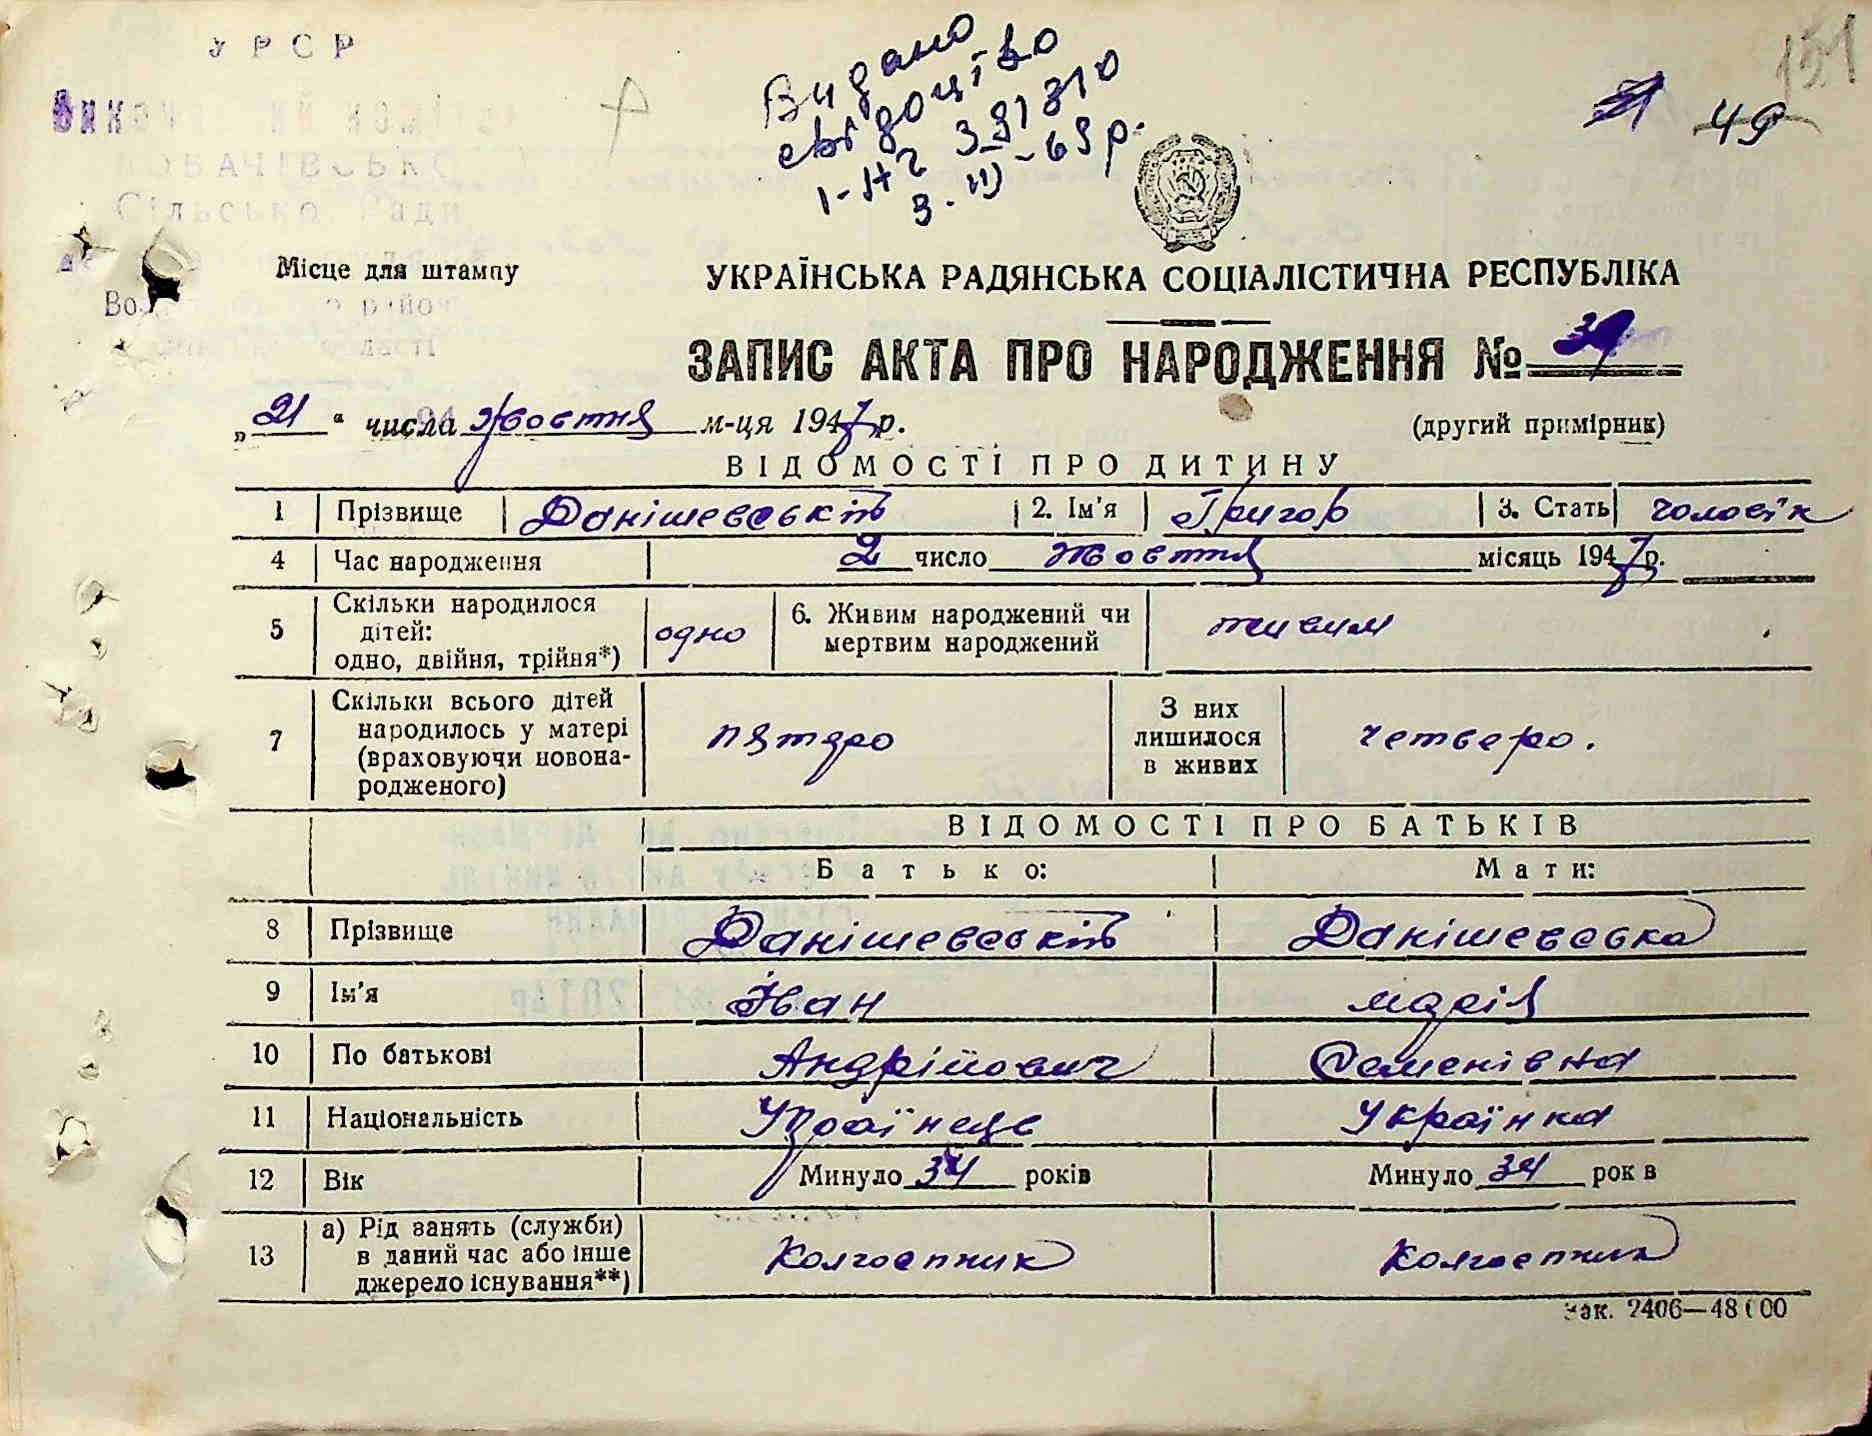 УРСР
Виконавчий комітет
Сільської Ради
Місце для штампу
Видано
свідоцтво
3. ІІ - 69 р.
151
49
УКРАЇНСЬКА РАДЯНСЬКА СОЦІАЛІСТИЧНА РЕСПУБЛІКА
ЗАПИС АКТА ПРО НАРОДЖЕННЯ № 39
„21“ числа жовтня м-ця 1947 р. (другий примірник)
ВІДОМОСТІ ПРО ДИТИНУ
1 Прізвище Данішевський 2. Ім'я Григор 3. Стать чоловік
4 Час народження 2 число жовтня місяць 1947 р.
5 Скільки народилося дітей: одно, двійня, трійня*) одно 6. Живим народжений чи мертвим народжений живим
7 Скільки всього дітей народилось у матері (враховуючи новонародженого) пятеро З них лишилося в живих четверо.
ВІДОМОСТІ ПРО БАТЬКІВ
Батько: Мати:
8 Прізвище Данішевський Данішевська
9 Ім'я Іван Марія
10 По батькові Андрійович Семенівна
11 Національність Українець Українка
12 Вік Минуло 34 років Минуло 34 рок в
13 а) Рід занять (служби) в даний час або інше джерело існування**) Колгоспник Колгоспник
Зак. 2406—48000